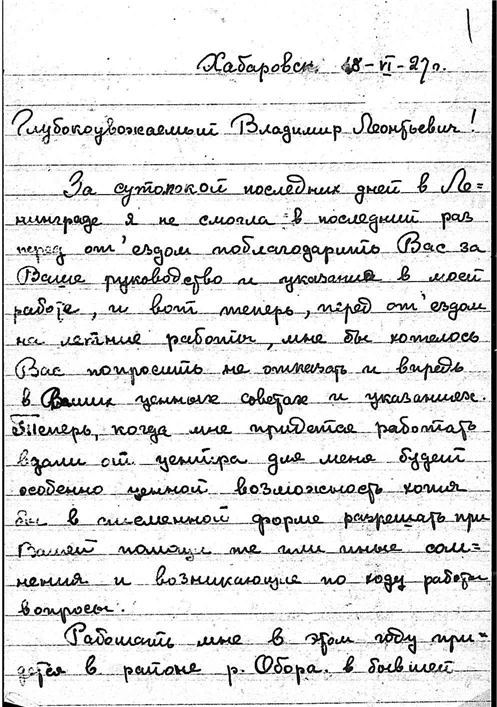 1
Хабаровск. 18-VI-27 г.
Глубокоуважаемый Владимир Леонтьевич!
За сутолокой последних дней в Ле=
нинграде я не смогла в последний раз
перед от'ездом поблагодарить Вас за
Ваше руководство и указания в моей
работе, и вот теперь, перед от'ездом
на летние работы, мне бы хотелось
Вас попросить не отказать и впредь
в Ваших ценных советах и указаниях.
Теперь, когда мне придется работать
вдали от центра для меня будет
особенно ценной возможность хотя
бы в письменной форме разрешать при
Вашей помощи те или иные сом=
нения и возникающие по ходу работы
вопросы.
Работать мне в этом году при=
дется в районе р. Обора. в бывшей